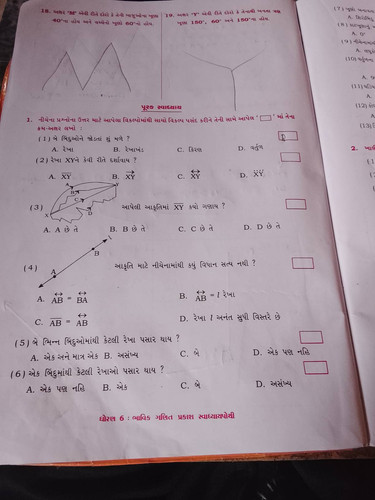 18. અક્ષર 'M' એવી રીતે દોરો કે તેની બાજુઓના ખૂણા
40°ના હોય અને વચ્ચેનો ખૂણો 60°નો હોય.
19. અક્ષર 'Y' એવી રીતે દોરો કે તેનાથી બનતા ત્રણ
ખૂણા 150°, 60° અને 150°ના હોય.
પૂરક સ્વાધ્યાય
1. નીચેના પ્રશ્નોના ઉત્તર માટે આપેલા વિકલ્પોમાંથી સાચો વિકલ્પ પસંદ કરીને તેની સામે આપેલ '□' માં તેના
ક્રમ-અક્ષર લખો :
(1) બે બિંદુઓને જોડતાં શું મળે ?
A. રેખા B. રેખાખંડ C. કિરણ D. વર્તુળ
(2) રેખા XYને કેવી રીતે દર્શાવાય ?
A. XY B. XY C. XY D. XY
(3) આપેલી આકૃતિમાં XY કયો ગણાય ?
A
B
C
D
X
Y
A. A છે તે B. B છે તે C. C છે તે D. D છે તે
(4) આકૃતિ માટે નીચેનામાંથી કયું વિધાન સત્ય નથી ?
A
B
l
A. AB = BA B. AB = l રેખા
C. AB = AB D. રેખા l અનંત સુધી વિસ્તરે છે
(5) બે ભિન્ન બિંદુઓમાંથી કેટલી રેખા પસાર થાય ?
A. એક અને માત્ર એક B. અસંખ્ય C. બે D. એક પણ નહિ
(6) એક બિંદુમાંથી કેટલી રેખાઓ પસાર થાય ?
A. એક પણ નહિ B. એક C. બે D. અસંખ્ય
ધોરણ 6 : ભાવિક ગણિત પ્રકાશ સ્વાધ્યાયપોથી